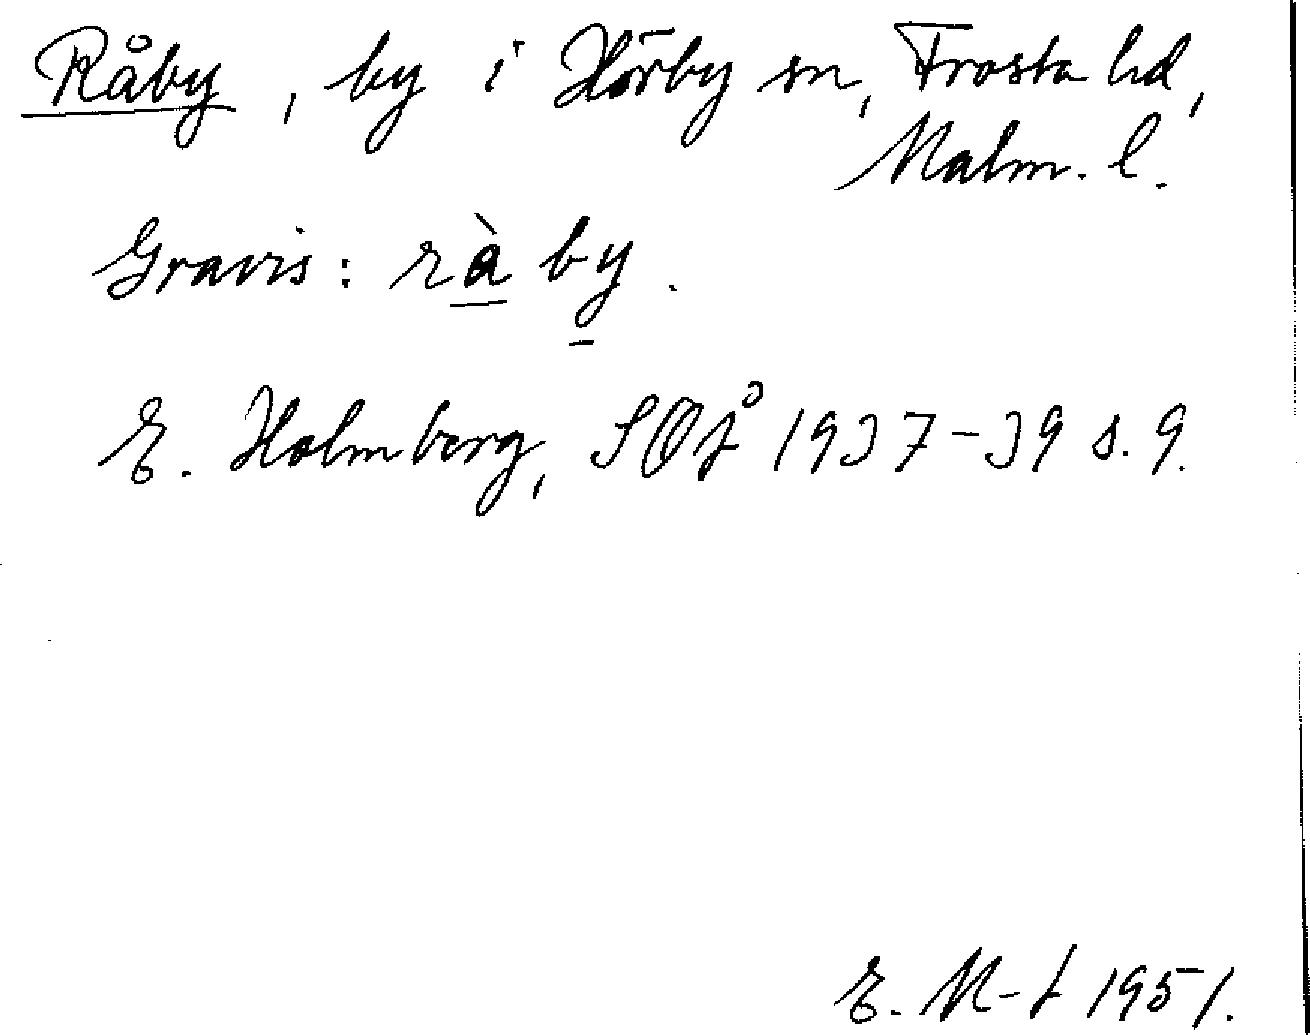 Råby, by i Hörby sn, Frosta hd,
Malm. l.
Gravis: rà by.
E. Holmberg, SOÅ 1937-39 s. 9.
E. M-t 1951.